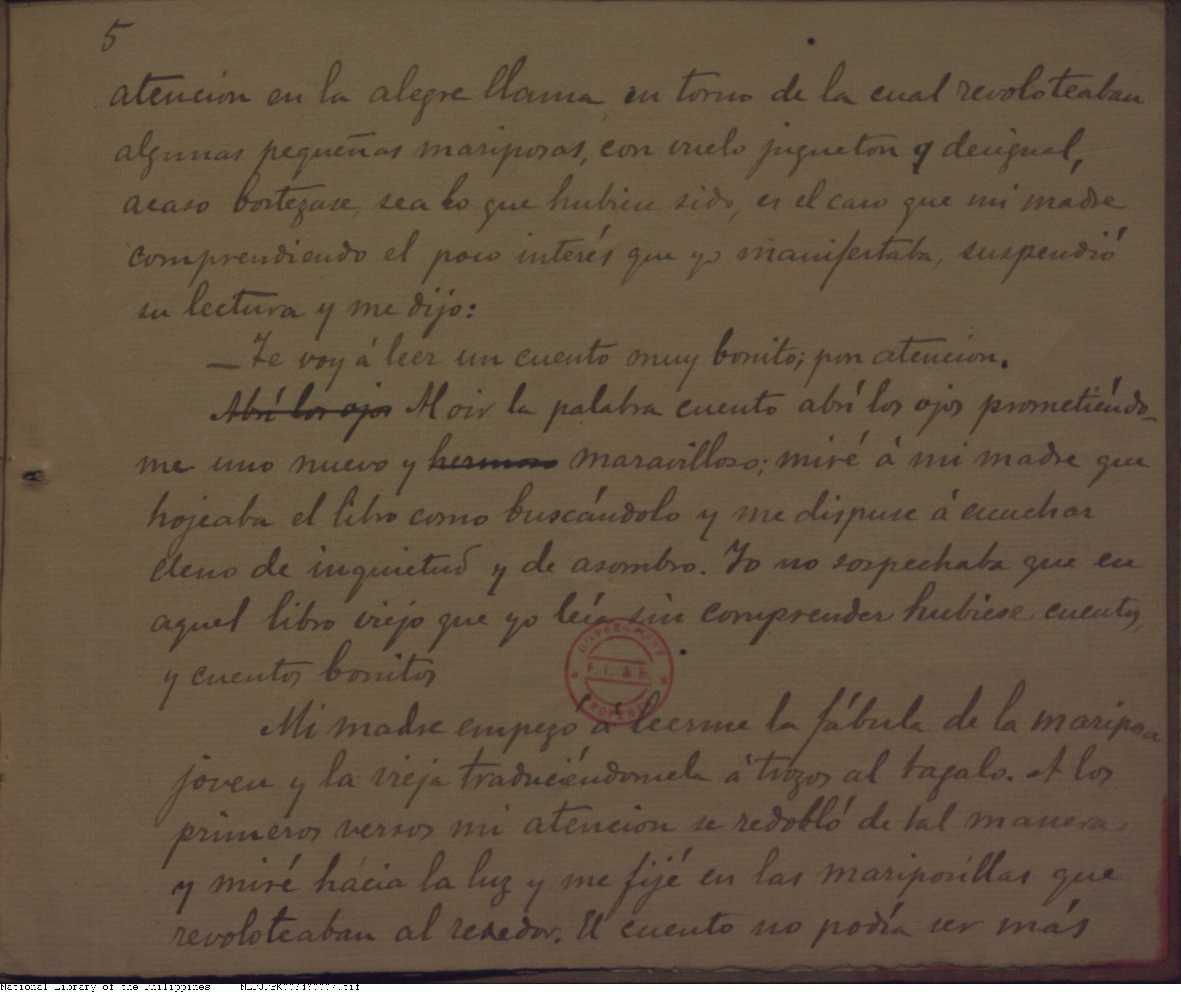 5
atencion en la alegre llama, en torno de la cual revoloteaban
algunas pequeñas mariposas, con vuelo jugueton y desigual,
acaso bostezase, sea lo que hubiere sido, es el caso que mi madre
comprendiendo el poco interés que yo manifestaba, suspendió
su lectura y me dijo:
—Te voy á leer un cuento muy bonito; pon atencion.
Abrí los ojos Al oir la palabra cuento abrí los ojos prometiéndo-
me uno nuevo y hermoso maravilloso; miré á mi madre que
hojeaba el libro como buscándolo y me dispuse á escuchar
lleno de inquietud y de asombro. Yo no sospechaba que en
aquel libro viejo que yo leía sin comprender hubiese cuentos,
y cuentos bonitos
Mi madre empezó á leerme la fábula de la mariposa
joven y la vieja traduciéndomela á trozos al tagalo. A los
primeros versos mi atencion se redobló de tal manera
y miré hácia la luz y me fijé en las mariposillas que
revoloteaban al rededor. El cuento no podía ser más
GOVERNMENT
PROPERTY
National Library of the Philippines